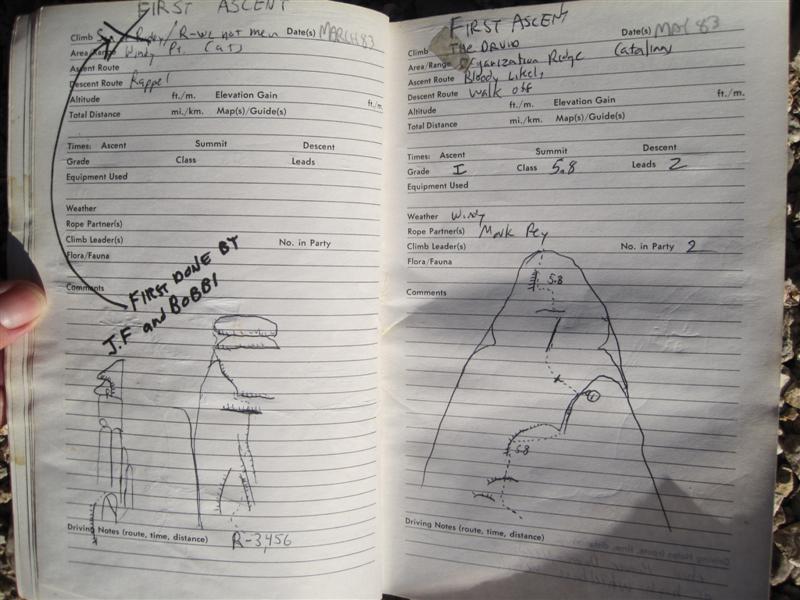 FIRST ASCENT
Climb / R-we not men Date(s) MARCH 83
Area/Range Windy Pt. (cat)
Ascent Route
Descent Route Rappel
Altitude ft./m. Elevation Gain ft./m.
Total Distance mi./km. Map(s)/Guide(s)
Times: Ascent Summit Descent
Grade Class Leads
Equipment Used
Weather
Rope Partner(s)
Climb Leader(s) No. in Party
Flora/Fauna
Comments
FIRST DONE BY
J.F and BOBBI
Driving Notes (route, time, distance) R-3,456
FIRST ASCENT
Climb THE DRUID Date(s) MAR 83
Area/Range Organization Ridge (Catalinas
Ascent Route Bloody Likely
Descent Route Walk off
Altitude ft./m. Elevation Gain ft./m.
Total Distance mi./km. Map(s)/Guide(s)
Times: Ascent Summit Descent
Grade I Class 5.8 Leads 2
Equipment Used
Weather Windy
Rope Partner(s) Mark Pey
Climb Leader(s) No. in Party 2
Flora/Fauna
5.8
Comments
5.8
Driving Notes (route, time, distance)